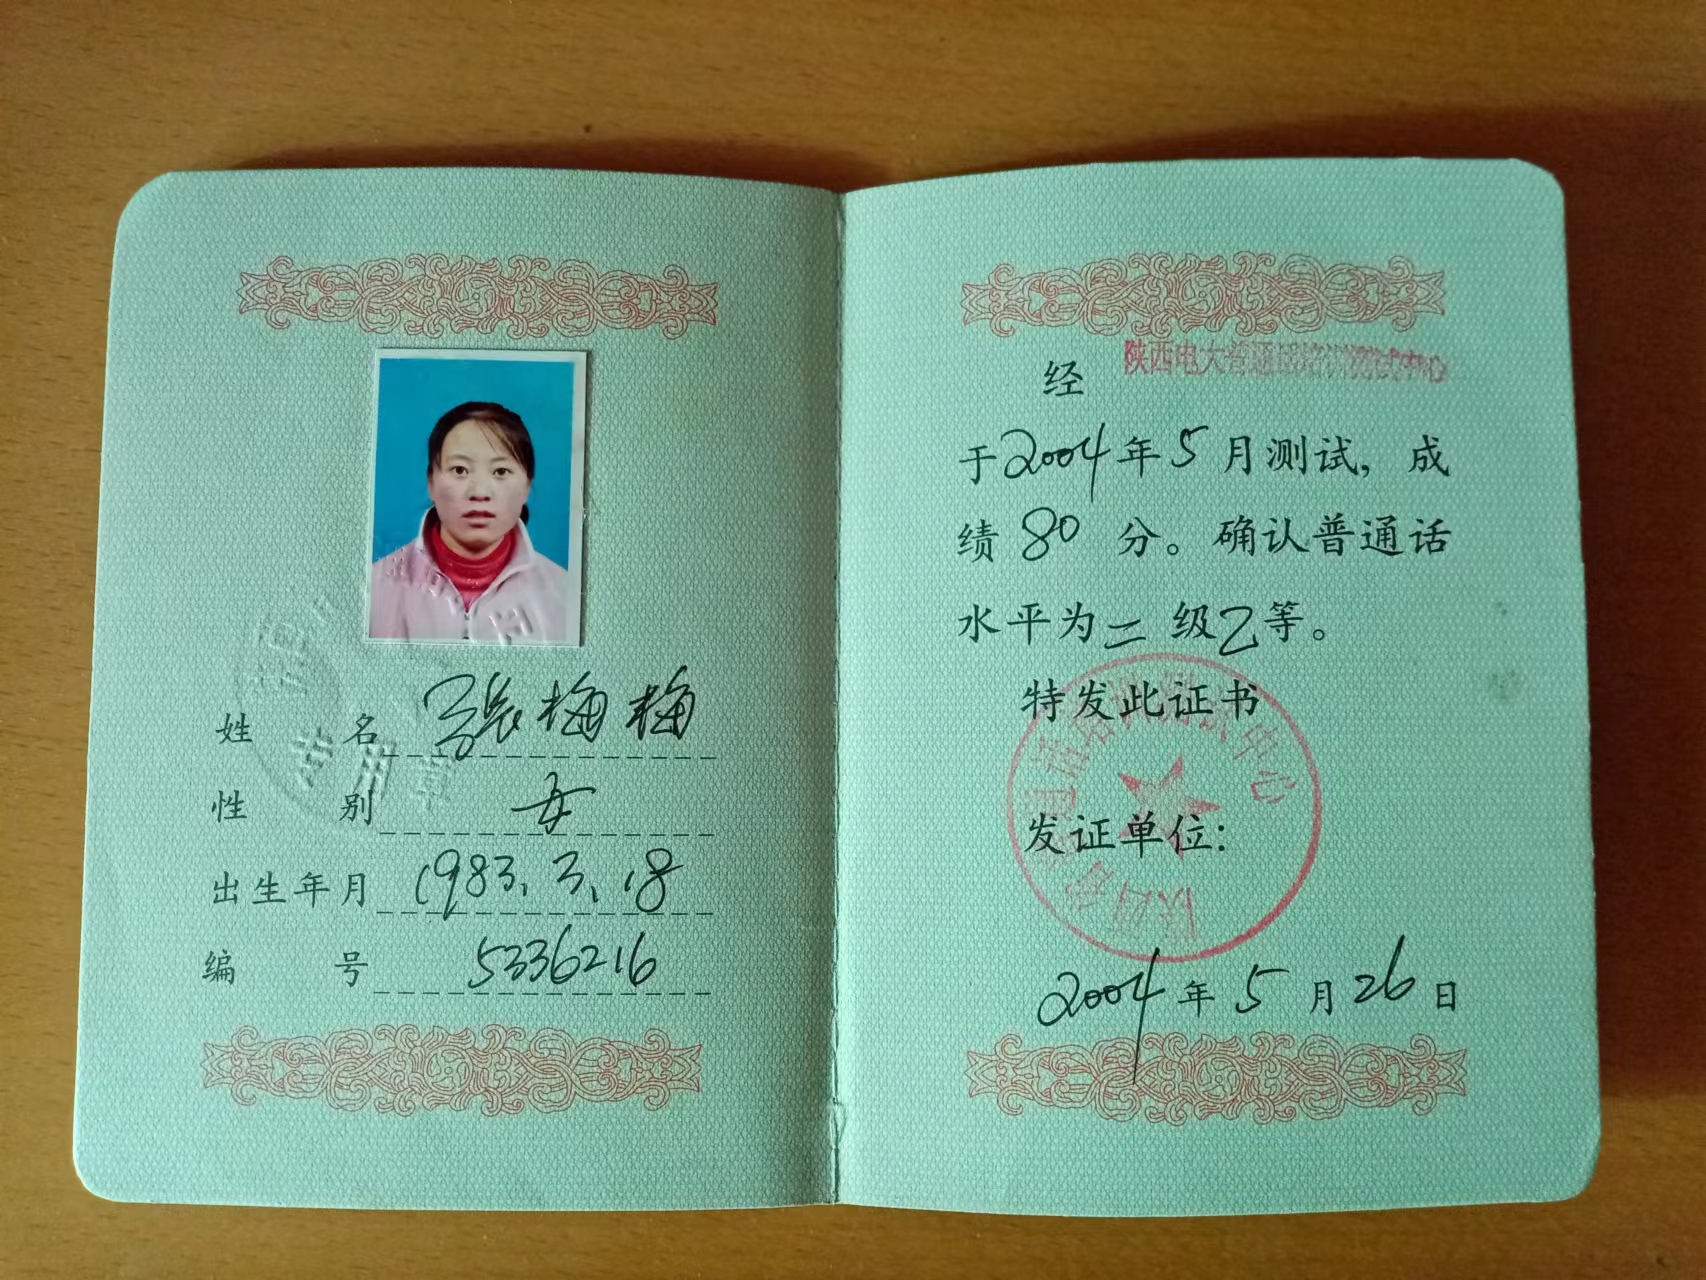 姓 名 張梅梅
性 别 女
出生年月 1983.3.18
编 号 5336216
专用章
陕西电大普通话培训测试中心
经
于2004年5月测试，成
绩 80 分。确认普通话
水平为二级乙等。
特发此证书
发证单位：
2004年5月26日